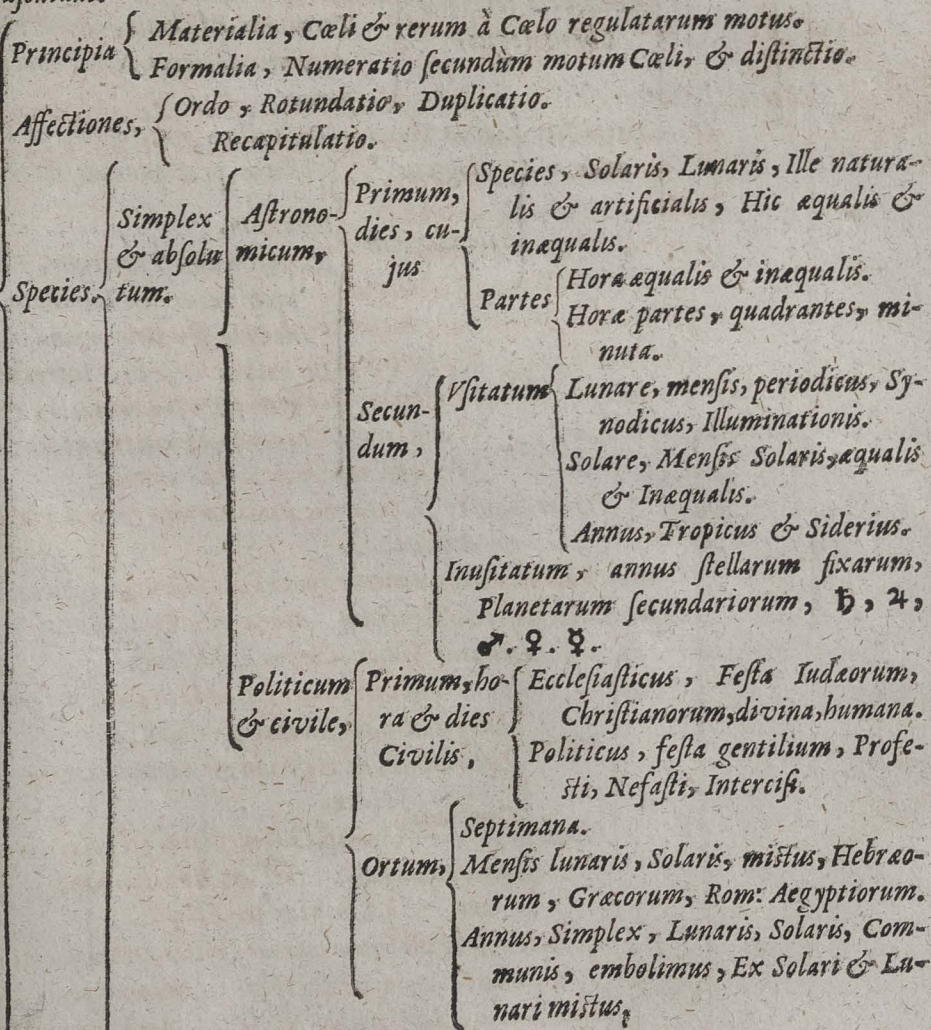 Principia
Materialia, Cœli & rerum à Cœlo regulatarum motus.
Formalia, Numeratio ſecundùm motum Cœli, & diſtinctio.
Affectiones,
Ordo, Rotundatio, Duplicatio.
Recapitulatio.
Species.
Simplex
& abſolu
tum.
Aſtrono-
micum,
Primum,
dies, cu-
jus
Species, Solaris, Lunaris, Ille natura-
lis & artificialis, Hic æqualis &
inæqualis.
Partes
Hora æqualis & inæqualis.
Horæ partes, quadrantes, mi-
nuta.
Secun-
dum,
Vſitatum
Lunare, menſis, periodicus, Sy-
nodicus, Illuminationis.
Solare, Menſis Solaris, æqualis
& Inæqualis.
Annus, Tropicus & Siderius.
Inuſitatum, annus ſtellarum fixarum,
Planetarum ſecundariorum, ♄, ♃,
♂. ♀. ☿.
Politicum
& civile,
Primum, ho-
ra & dies
Civilis,
Eccleſiaſticus, Feſta Iudæorum,
Chriſtianorum, divina, humana.
Politicus, feſta gentilium, Profe-
ſti, Nefaſti, Interciſi.
Ortum,
Septimana.
Menſis lunaris, Solaris, miſtus, Hebræo-
rum, Græcorum, Rom: Aegyptiorum.
Annus, Simplex, Lunaris, Solaris, Com-
munis, embolimus, Ex Solari & Lu-
nari miſtus,